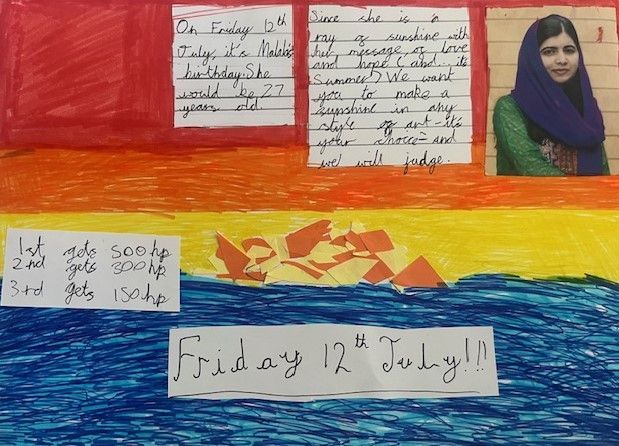 On Friday 12th
July, it's Malala's
birthday. She
would be 27
years old
Since she is a
ray of sunshine with
her message of love
and hope (and... it's
Summer) We want
you to make a
sunshine in any
style of art - it's
your choice - and
we will judge.
1st gets 500hp
2nd gets 300hp
3rd gets 150hp
Friday 12th July!!!